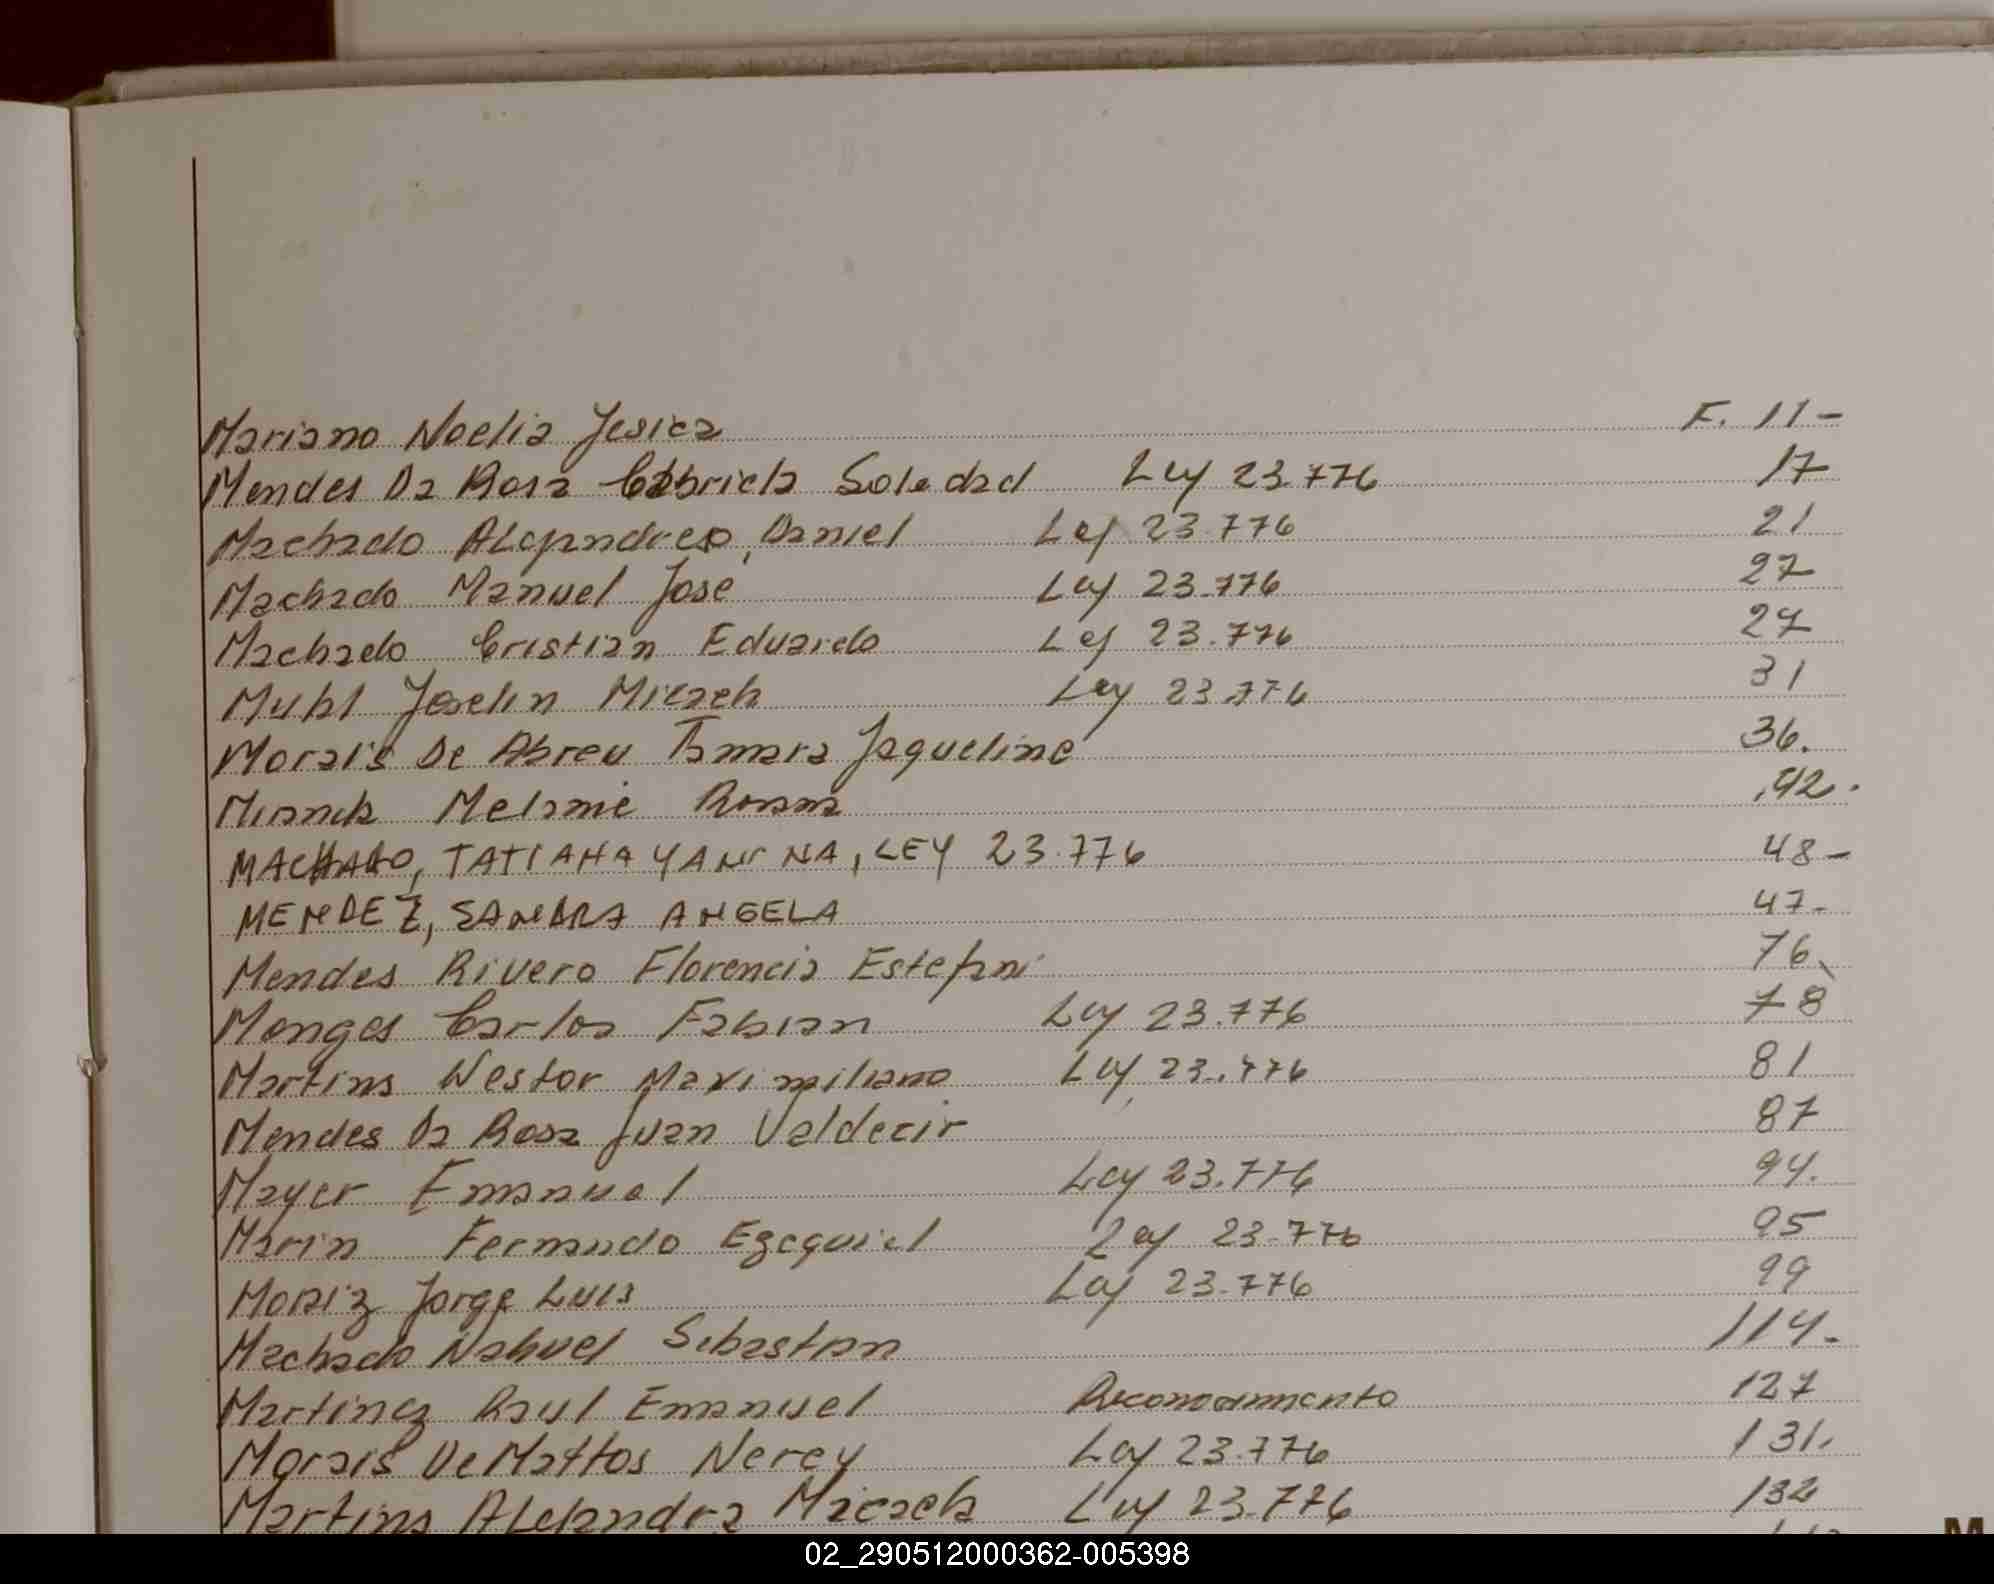 Mariano Noelia Jesica F. 11-
Mendes Da Rosa Gabriela Soledad Ley 23.776 17
Machado Daniel Ley 23.776 21
Machado Manuel José Ley 23.776 27
Machado Cristian Eduardo Ley 23.776 27
Muhl Joselin Micaela Ley 23.776 31
Morais De Abreu Tamara Jaqueline 36.
Miranda Melanie Rosana 42.
MACHADO, TATIANA YANINA, LEY 23.776 48-
MENDEZ, SANDRA ANGELA 47-
Mendes Rivero Florencia Estefani 76
Monges Carlos Fabian Ley 23.776 78
Martins Nestor Maximiliano Ley 23.776 81
Mendes Da Rosa Juan Valdecir 87
Mayer Emanuel Ley 23.776 94.
Marin Fernando Ezequiel Ley 23.776 95
Moraiz Jorge Luis Ley 23.776 99
Machado Nahuel Sebastian 114-
Martinez Raul Emanuel Reconocimiento 127
Morais De Mattos Nerey Ley 23.776 131.
Martins Alejandra Micaela Ley 23.776 132
M
02_290512000362-005398